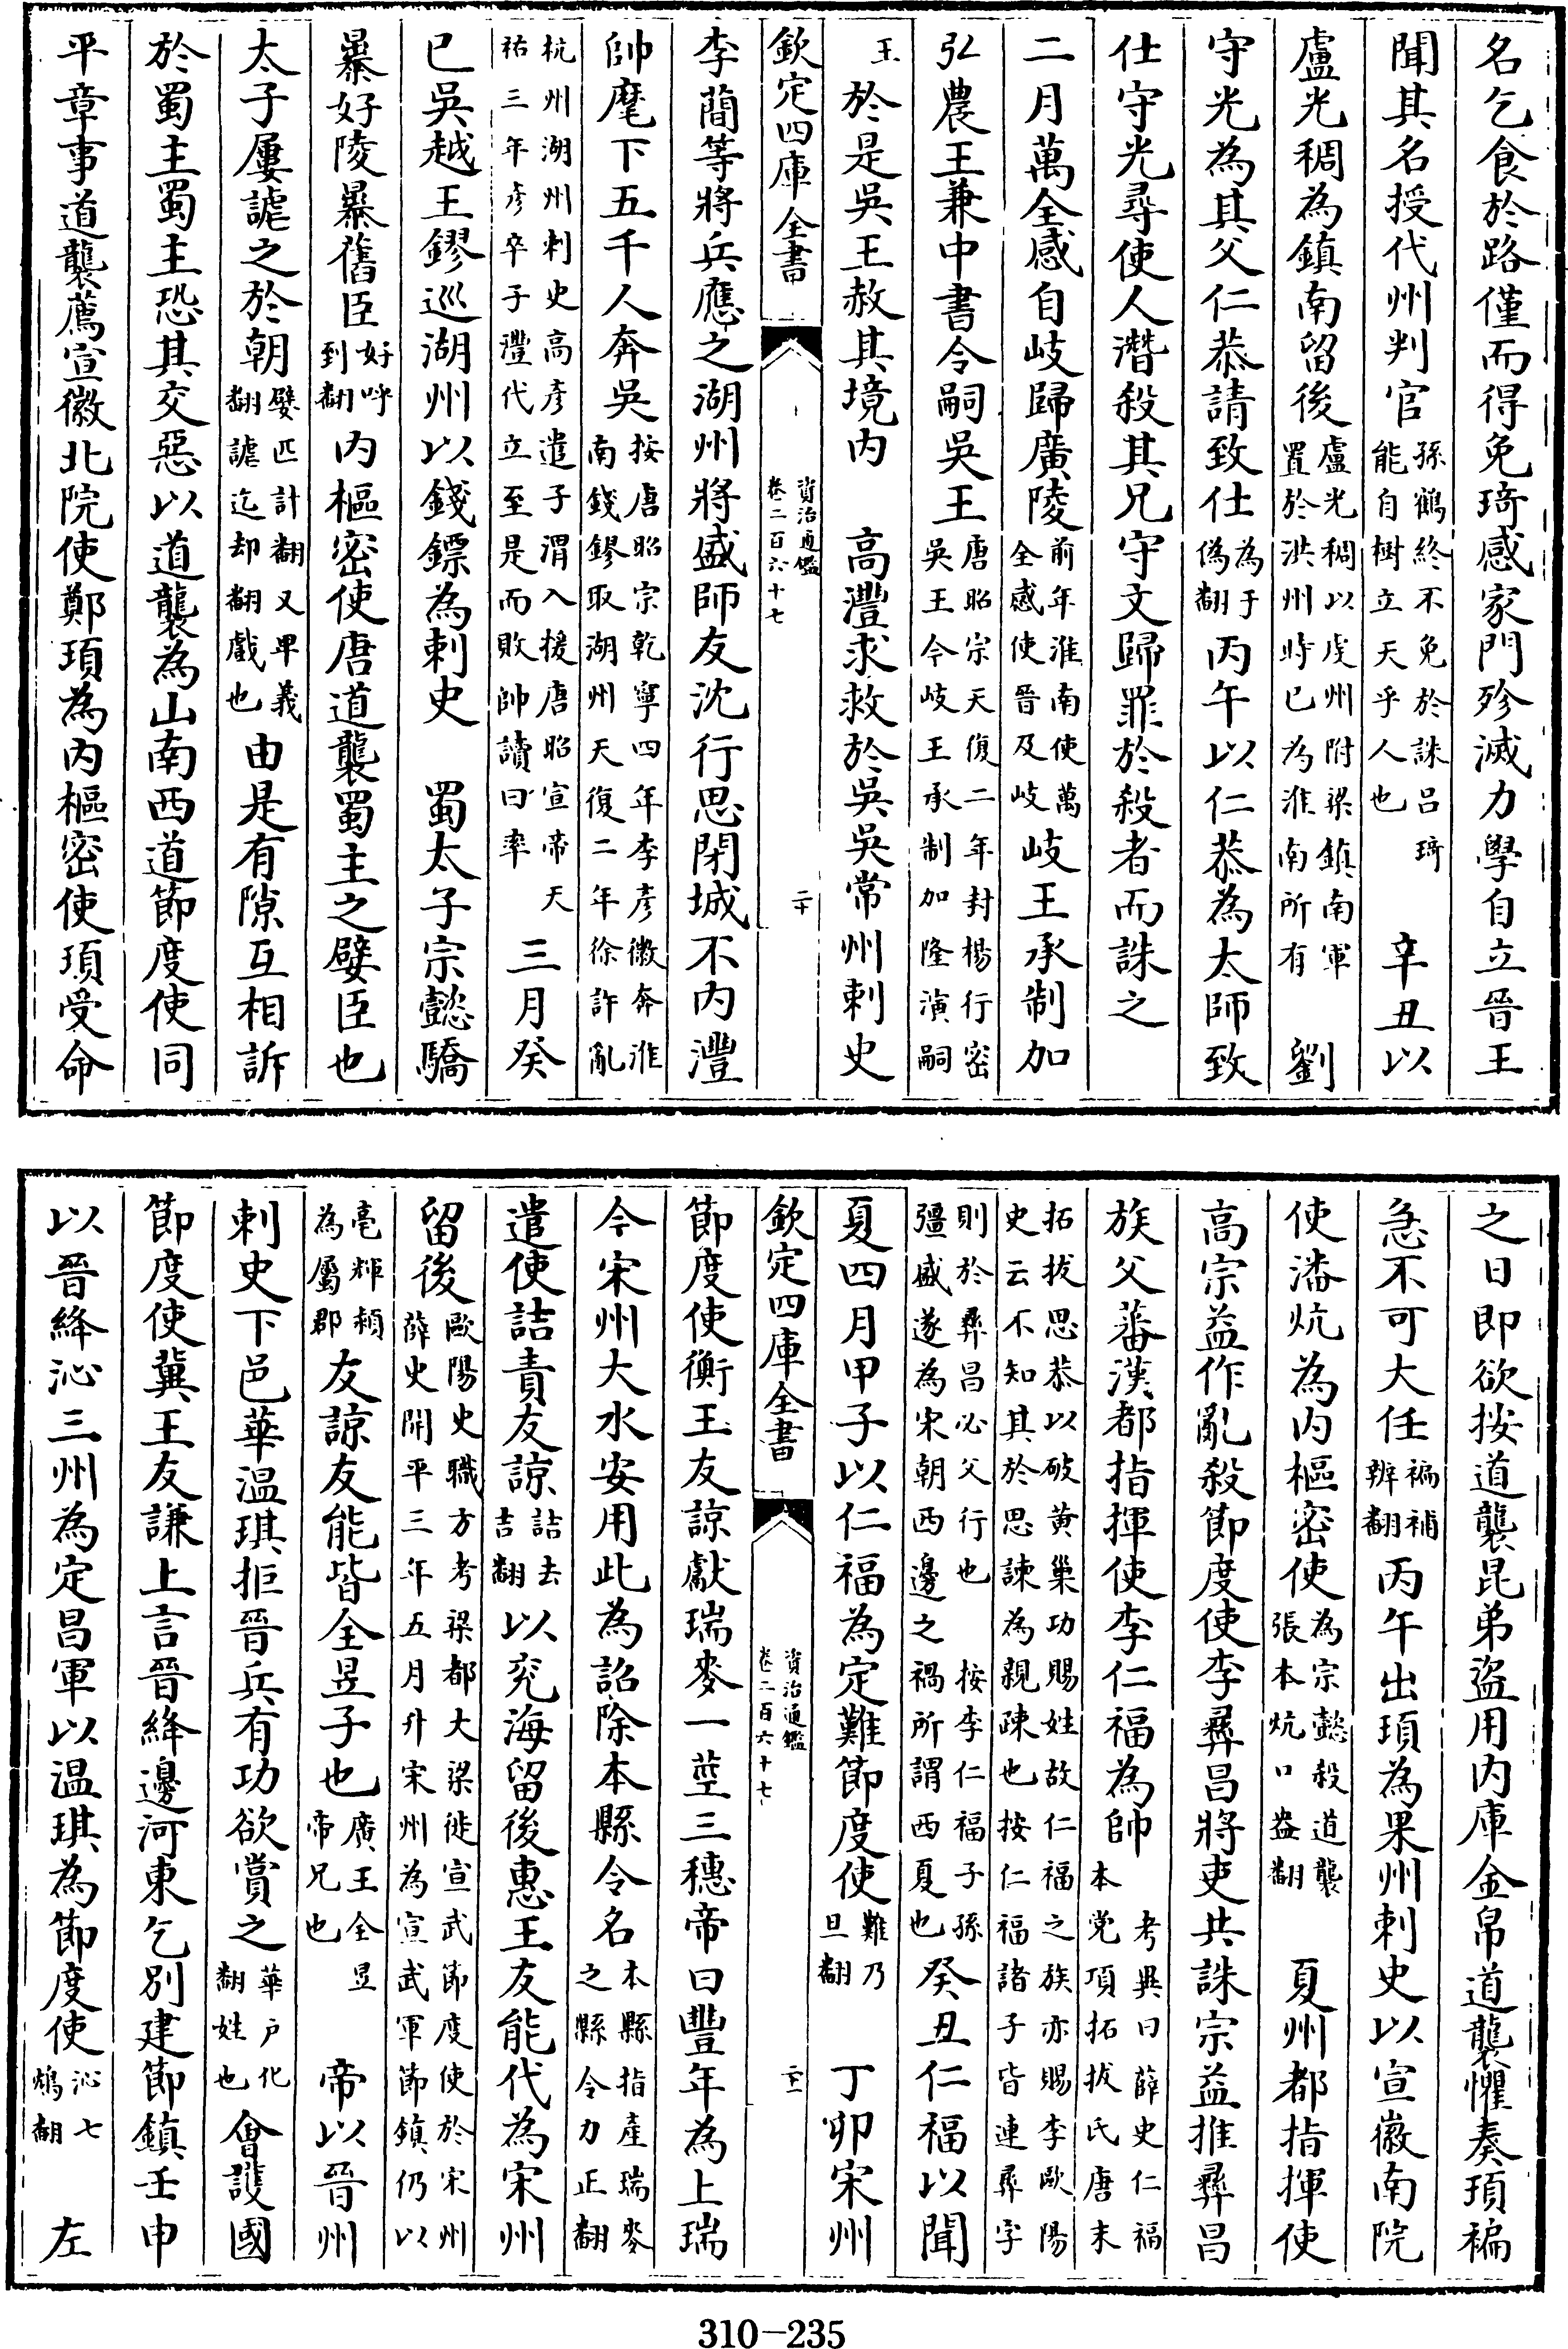 名乞食於路僅而得免琦感家門殄滅力學自立晉王
聞其名授代州判官孫鶴終不免於誅吕琦能自樹立天乎人也　辛丑以
盧光稠為鎮南留後盧光稠以虔州附梁鎮南軍置於洪州時已為淮南所有　劉
守光為其父仁恭請致仕為于偽翻丙午以仁恭為太師致
仕守光尋使人潛殺其兄守文歸罪於殺者而誅之
二月萬全感自岐歸廣陵前年淮南使萬全感使晉及岐岐王承制加
弘農王兼中書令嗣吳王唐昭宗天復二年封楊行密吳王今岐王承制加隆演嗣
王於是吳王赦其境内　高澧求救於吳吳常州刺史
欽定四庫全書　資治通鑑卷二百六十七　二十
李蕳等將兵應之湖州將盛師友沈行思閉城不内澧
帥麾下五千人奔吳按唐昭宗乾寧四年李彦徽奔淮南錢鏐取湖州天復二年徐許亂
杭州湖州刺史高彦遣子渭入援唐昭宣帝天祐三年彦卒子澧代立至是而敗帥讀曰率　三月癸
巳吳越王鏐巡湖州以錢鏢為刺史　蜀太子宗懿驕
暴好陵暴舊臣好呼到翻内樞密使唐道襲蜀主之嬖臣也
太子屢謔之於朝嬖匹計翻又卑義翻謔迄却翻戲也由是有隙互相訴
於蜀主蜀主恐其交惡以道襲為山南西道節度使同
平章事道襲薦宣徽北院使鄭頊為内樞密使頊受命
之日即欲按道襲昆弟盜用内庫金帛道襲懼奏頊褊
急不可大任褊補辨翻丙午出頊為果州刺史以宣徽南院
使潘炕為内樞密使為宗懿殺道襲張本炕口盎翻　夏州都指揮使
高宗益作亂殺節度使李彝昌將吏共誅宗益推彝昌
族父蕃漢都指揮使李仁福為帥考異曰薛史仁福本党項拓拔氏唐末
拓拔思恭以破黄巢功賜姓故仁福之族亦賜李歐陽史云不知其於思諫為親疎也按仁福諸子皆連彝字
則於彝昌必父行也　按李仁福子孫彊盛遂為宋朝西邊之禍所謂西夏也癸丑仁福以聞
夏四月甲子以仁福為定難節度使難乃旦翻　丁卯宋州
欽定四庫全書　資治通鑑卷二百六十七　二十一
節度使衡王友諒獻瑞麥一莖三穗帝曰豐年為上瑞
今宋州大水安用此為詔除本縣令名本縣指產瑞麥之縣令力正翻
遣使詰責友諒詰去吉翻以兖海留後惠王友能代為宋州
留後歐陽史職方考梁都大梁徙宣武節度使於宋州薛史開平三年五月升宋州為宣武軍節鎮仍以
亳輝潁為屬郡友諒友能皆全昱子也廣王全昱帝兄也　帝以晉州
刺史下邑華温琪拒晉兵有功欲賞之華户化翻姓也會護國
節度使冀王友謙上言晉絳邊河東乞別建節鎮壬申
以晉絳沁三州為定昌軍以温琪為節度使沁七鴆翻　左
310-235